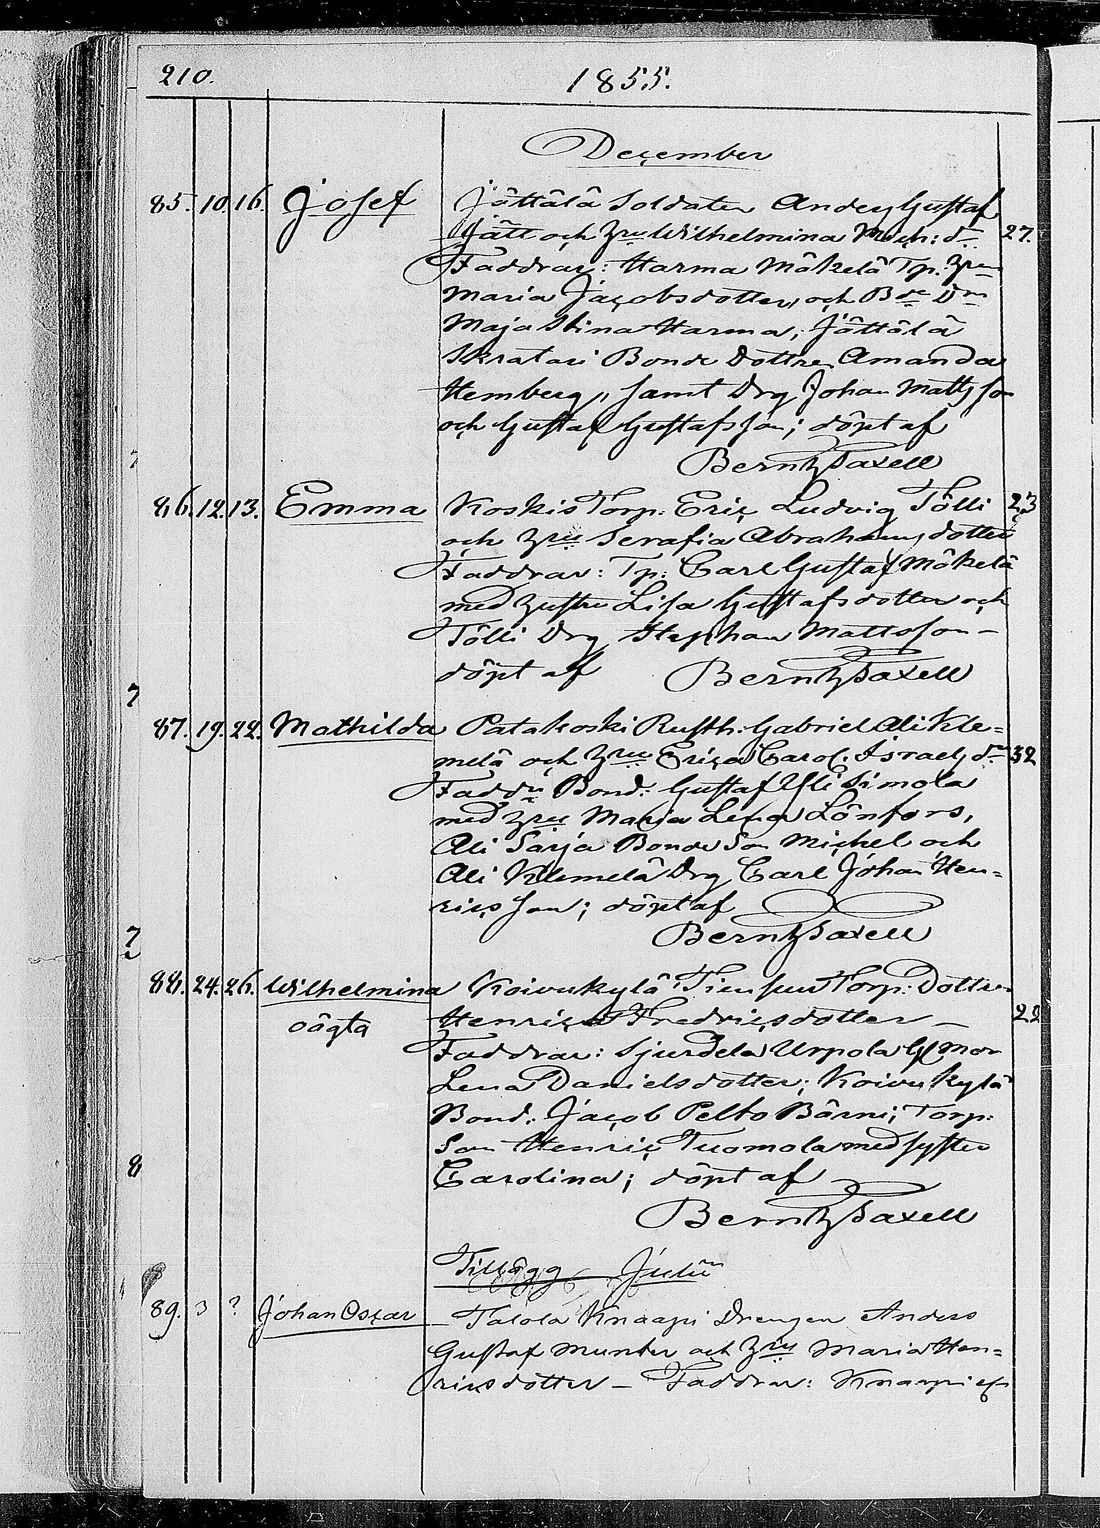 210. 1855.
December
85. 10. 16. Josef Jättälä Soldaten Anders Gustaf
Jätt och Hru Wilhelmina Mich: dr 27.
Faddrar: Harma Mäkelä Tp. Hru
Maria Jacobsdotter, och Bde Dn
Maja Stina Harma; Jättälä
Skratari Bonde Dottren Amanda
Hemberg, samt Drg Johan Mattsson
och Gustaf Gustafsson; döpt af
Bernh Saxell
86. 12. 13. Emma Koskis Torp: Eric Ludvig Tölli 23
och Hru Serafia Abrahamsdotter
Faddrar: Tp: Carl Gustaf Mäkelä
med hustru Lisa Gustafsdotter och
Tölli Drg Stephan Mattsson –
döpt af Bernh Saxell
87. 19. 22. Mathilda Patakoski Rusth: Gabriel Ali Kle=
melä och Hru Erica Carol. Israels dr 32
Faddr Bond: Gustaf Yli Simola
med Hru Maria Lena Lönfors,
Ali Sarja Bonde Son Michel och
Ali Klemelä Drg Carl Johan Hen=
ricsson; döpt af
Bernh Saxell
88. 24. 26. Wilhelmina Koivukylä Torp: Dottren
oägta Henrica Fredricsdotter –
Faddrar: Sjurdela Urpola Gl Mor
Lena Danielsdotter; Koivukylä
Bond: Jacob Pelto Bärni; Torp:
Son Henric Tuomola med syster
Carolina; döpt af
Bernh Saxell
Tillägg Julii
89. 3 ? Johan Oscar Talola Knaapi Drengen Anders
Gustaf Munter och Hru Maria Hen=
ricsdotter – Faddrar: Knaapi
7
7
7
8